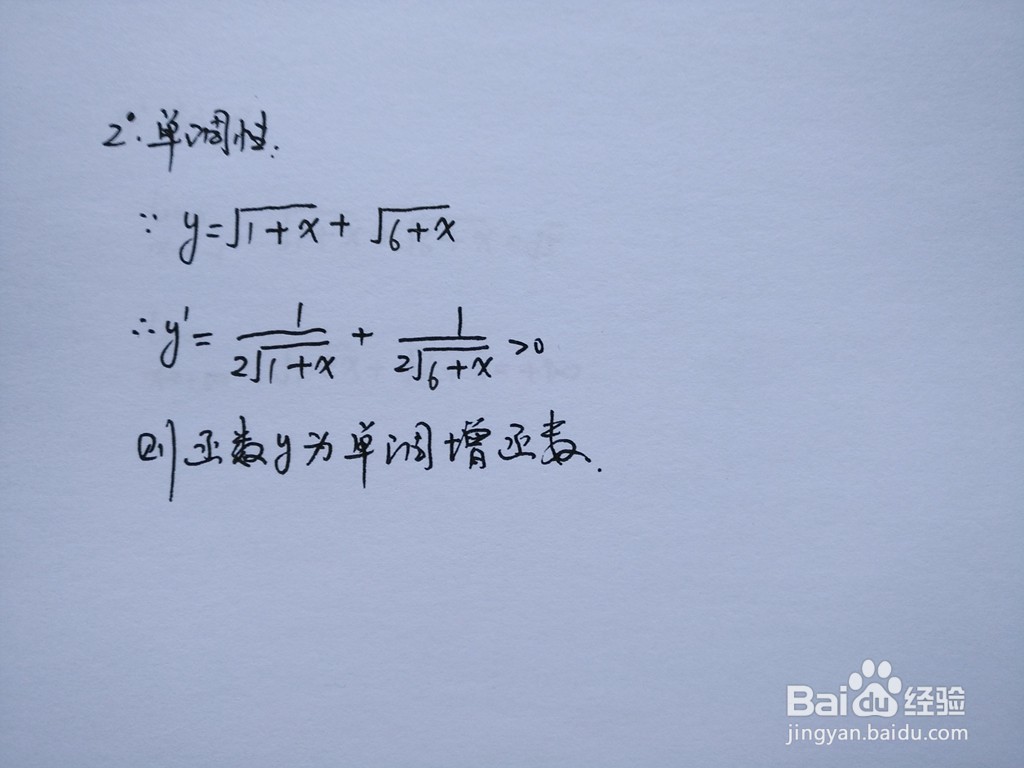 2°. 单调性.
∵ y=√(1+x) + √(6+x)
∴ y' = 1/(2√(1+x)) + 1/(2√(6+x)) >0
则函数y为单调增函数.
Baidu经验
jingyan.baidu.com